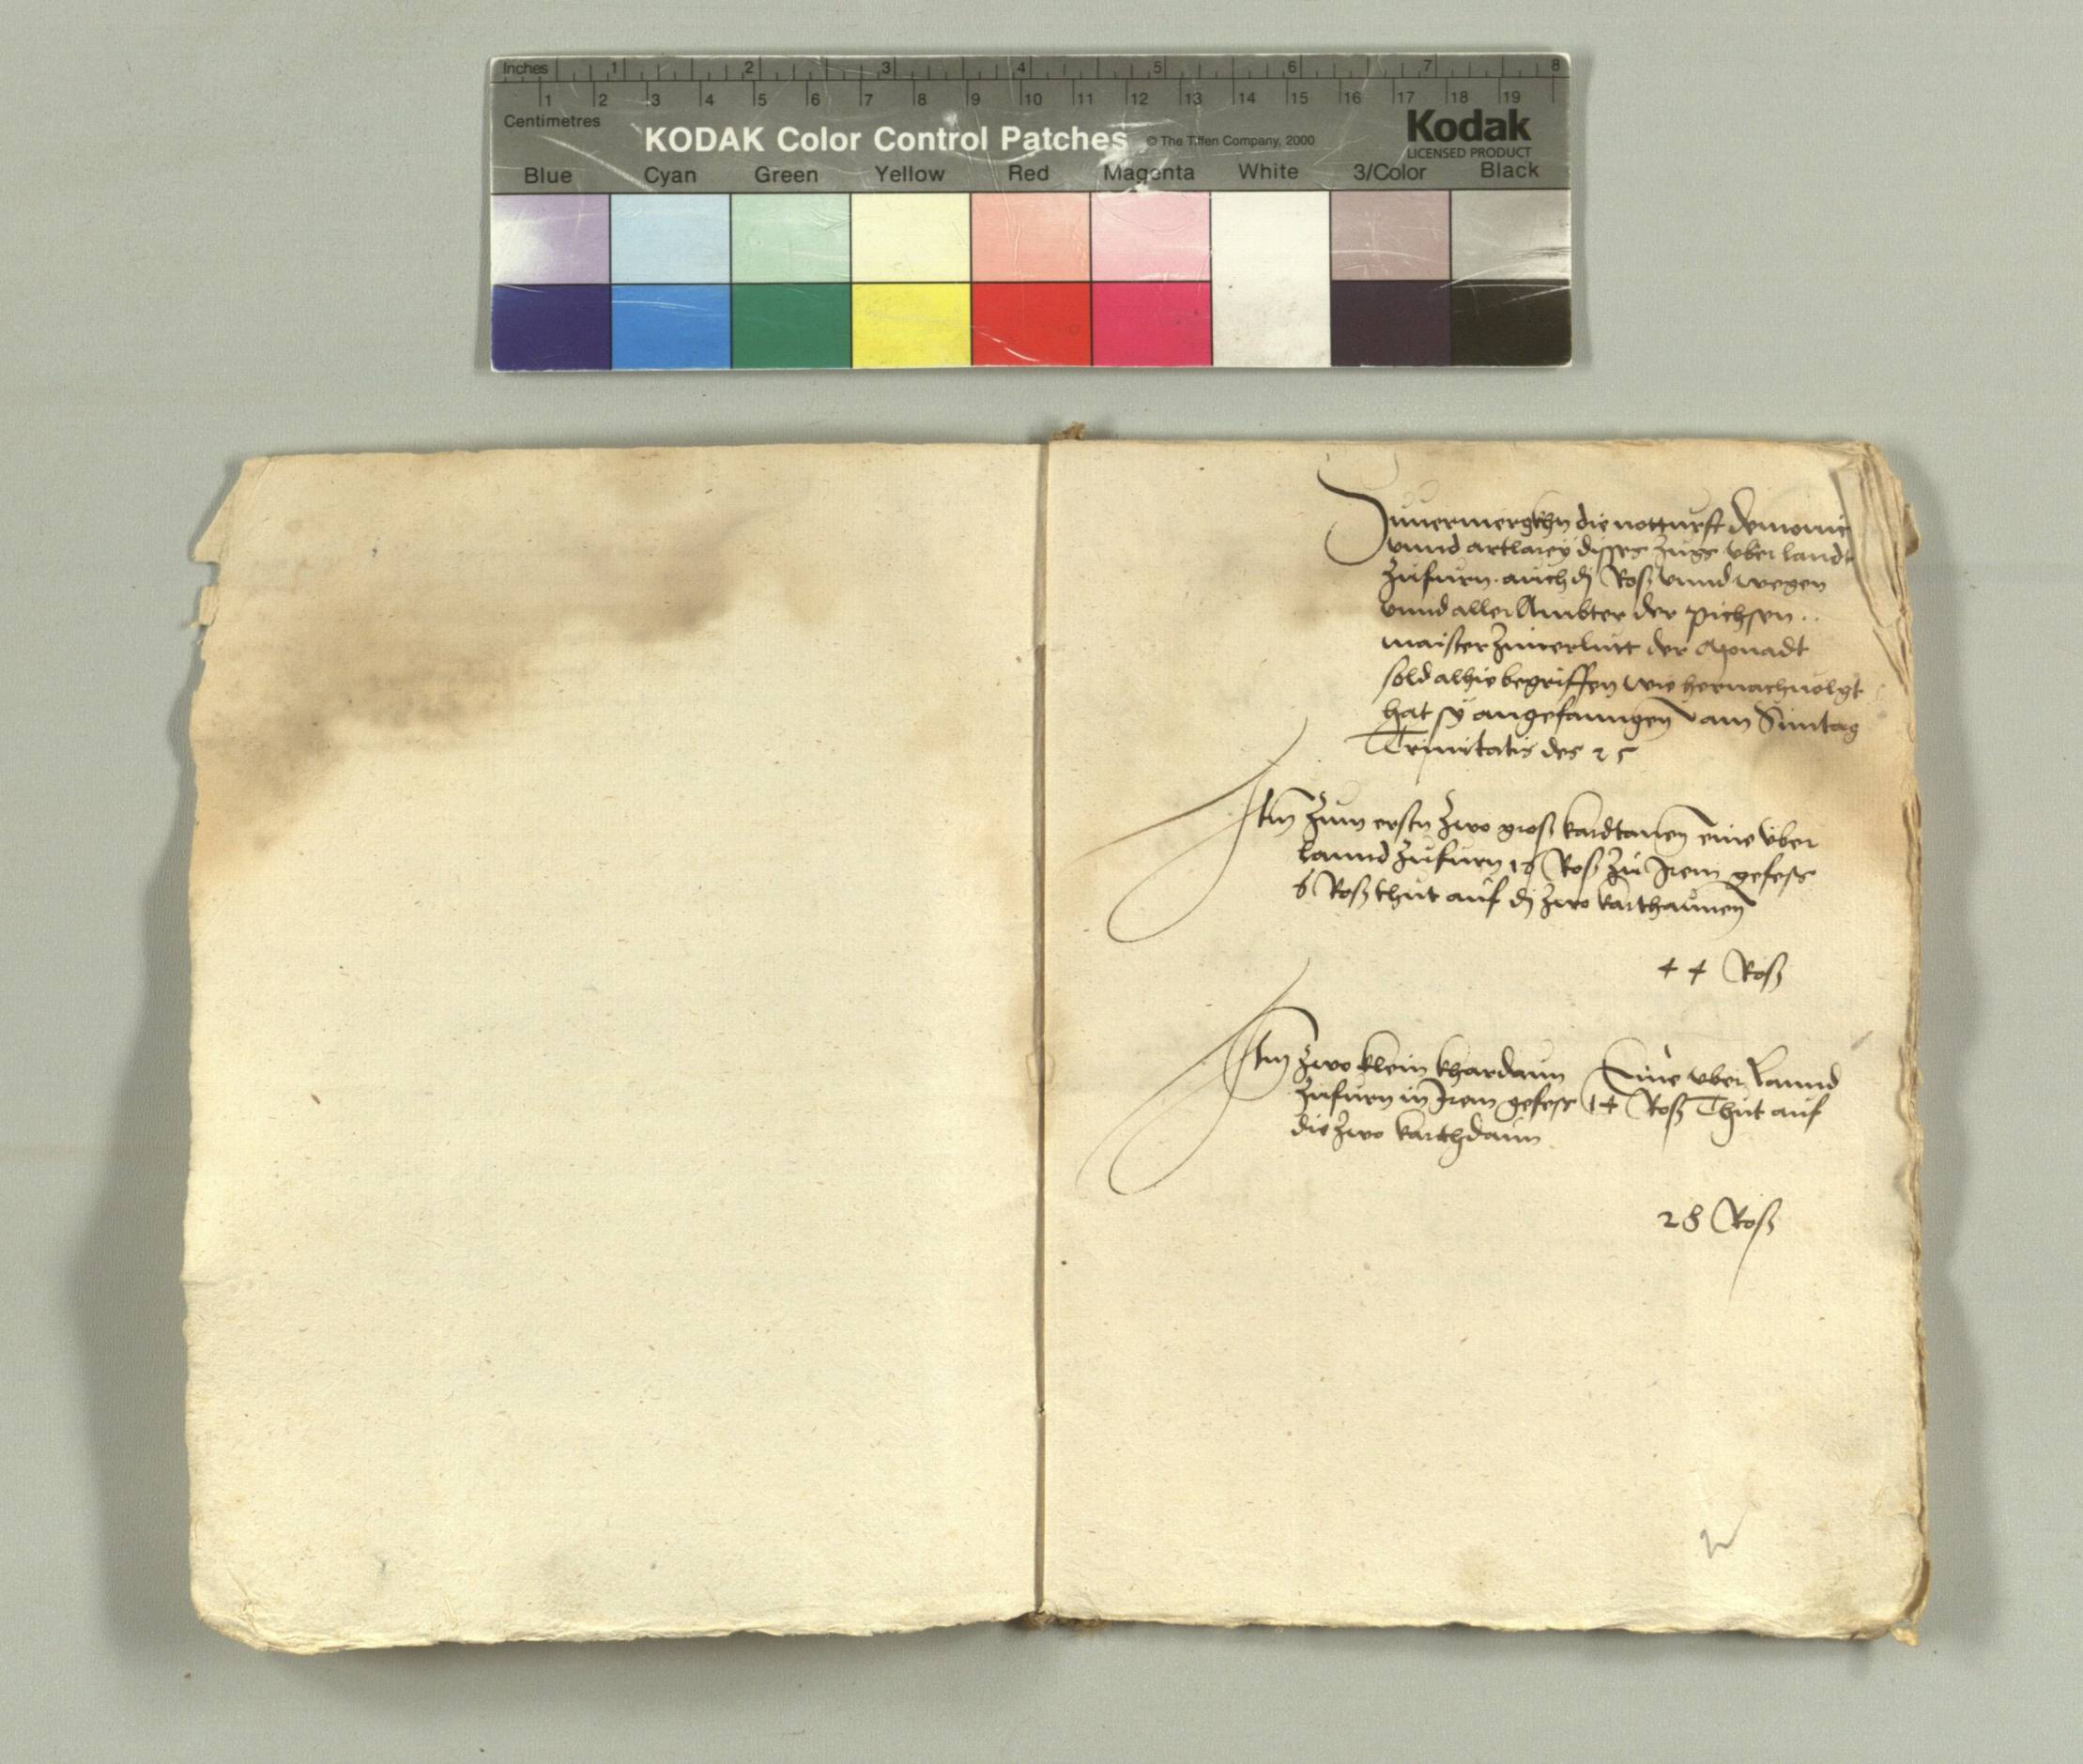 Inches 1 2 3 4 5 6 7 8
1 2 3 4 5 6 7 8 9 10 11 12 13 14 15 16 17 18 19
Centimetres
KODAK Color Control Patches © The Tiffen Company, 2000 Kodak
LICENSED PRODUCT
Blue Cyan Green Yellow Red Magenta White 3/Color Black
Zuuermergkhn die notturft
vnnd artlarey disses zugs vber landt
zufurn auch dj Roß vnnd wegen
vnnd aller Ambter der pichsen..
maister Zimerlutt der Monadt
sold alhie begriffen wie hernachuolgt
hat sy angefanngen am Suntag
Trinitatis des 25
Itm zum erstn zwo groß kardtanen eine vber
lannd zufurn 16 Roß zu Irem gefess
6 Roß thut auf dj zwo karthaunen
44 Roß
Itm zwo klein khardaun Eine vber Lannd
zufurn in Irem gefess 14 Roß Thut auf
die zwo karthdaun
28 Roß